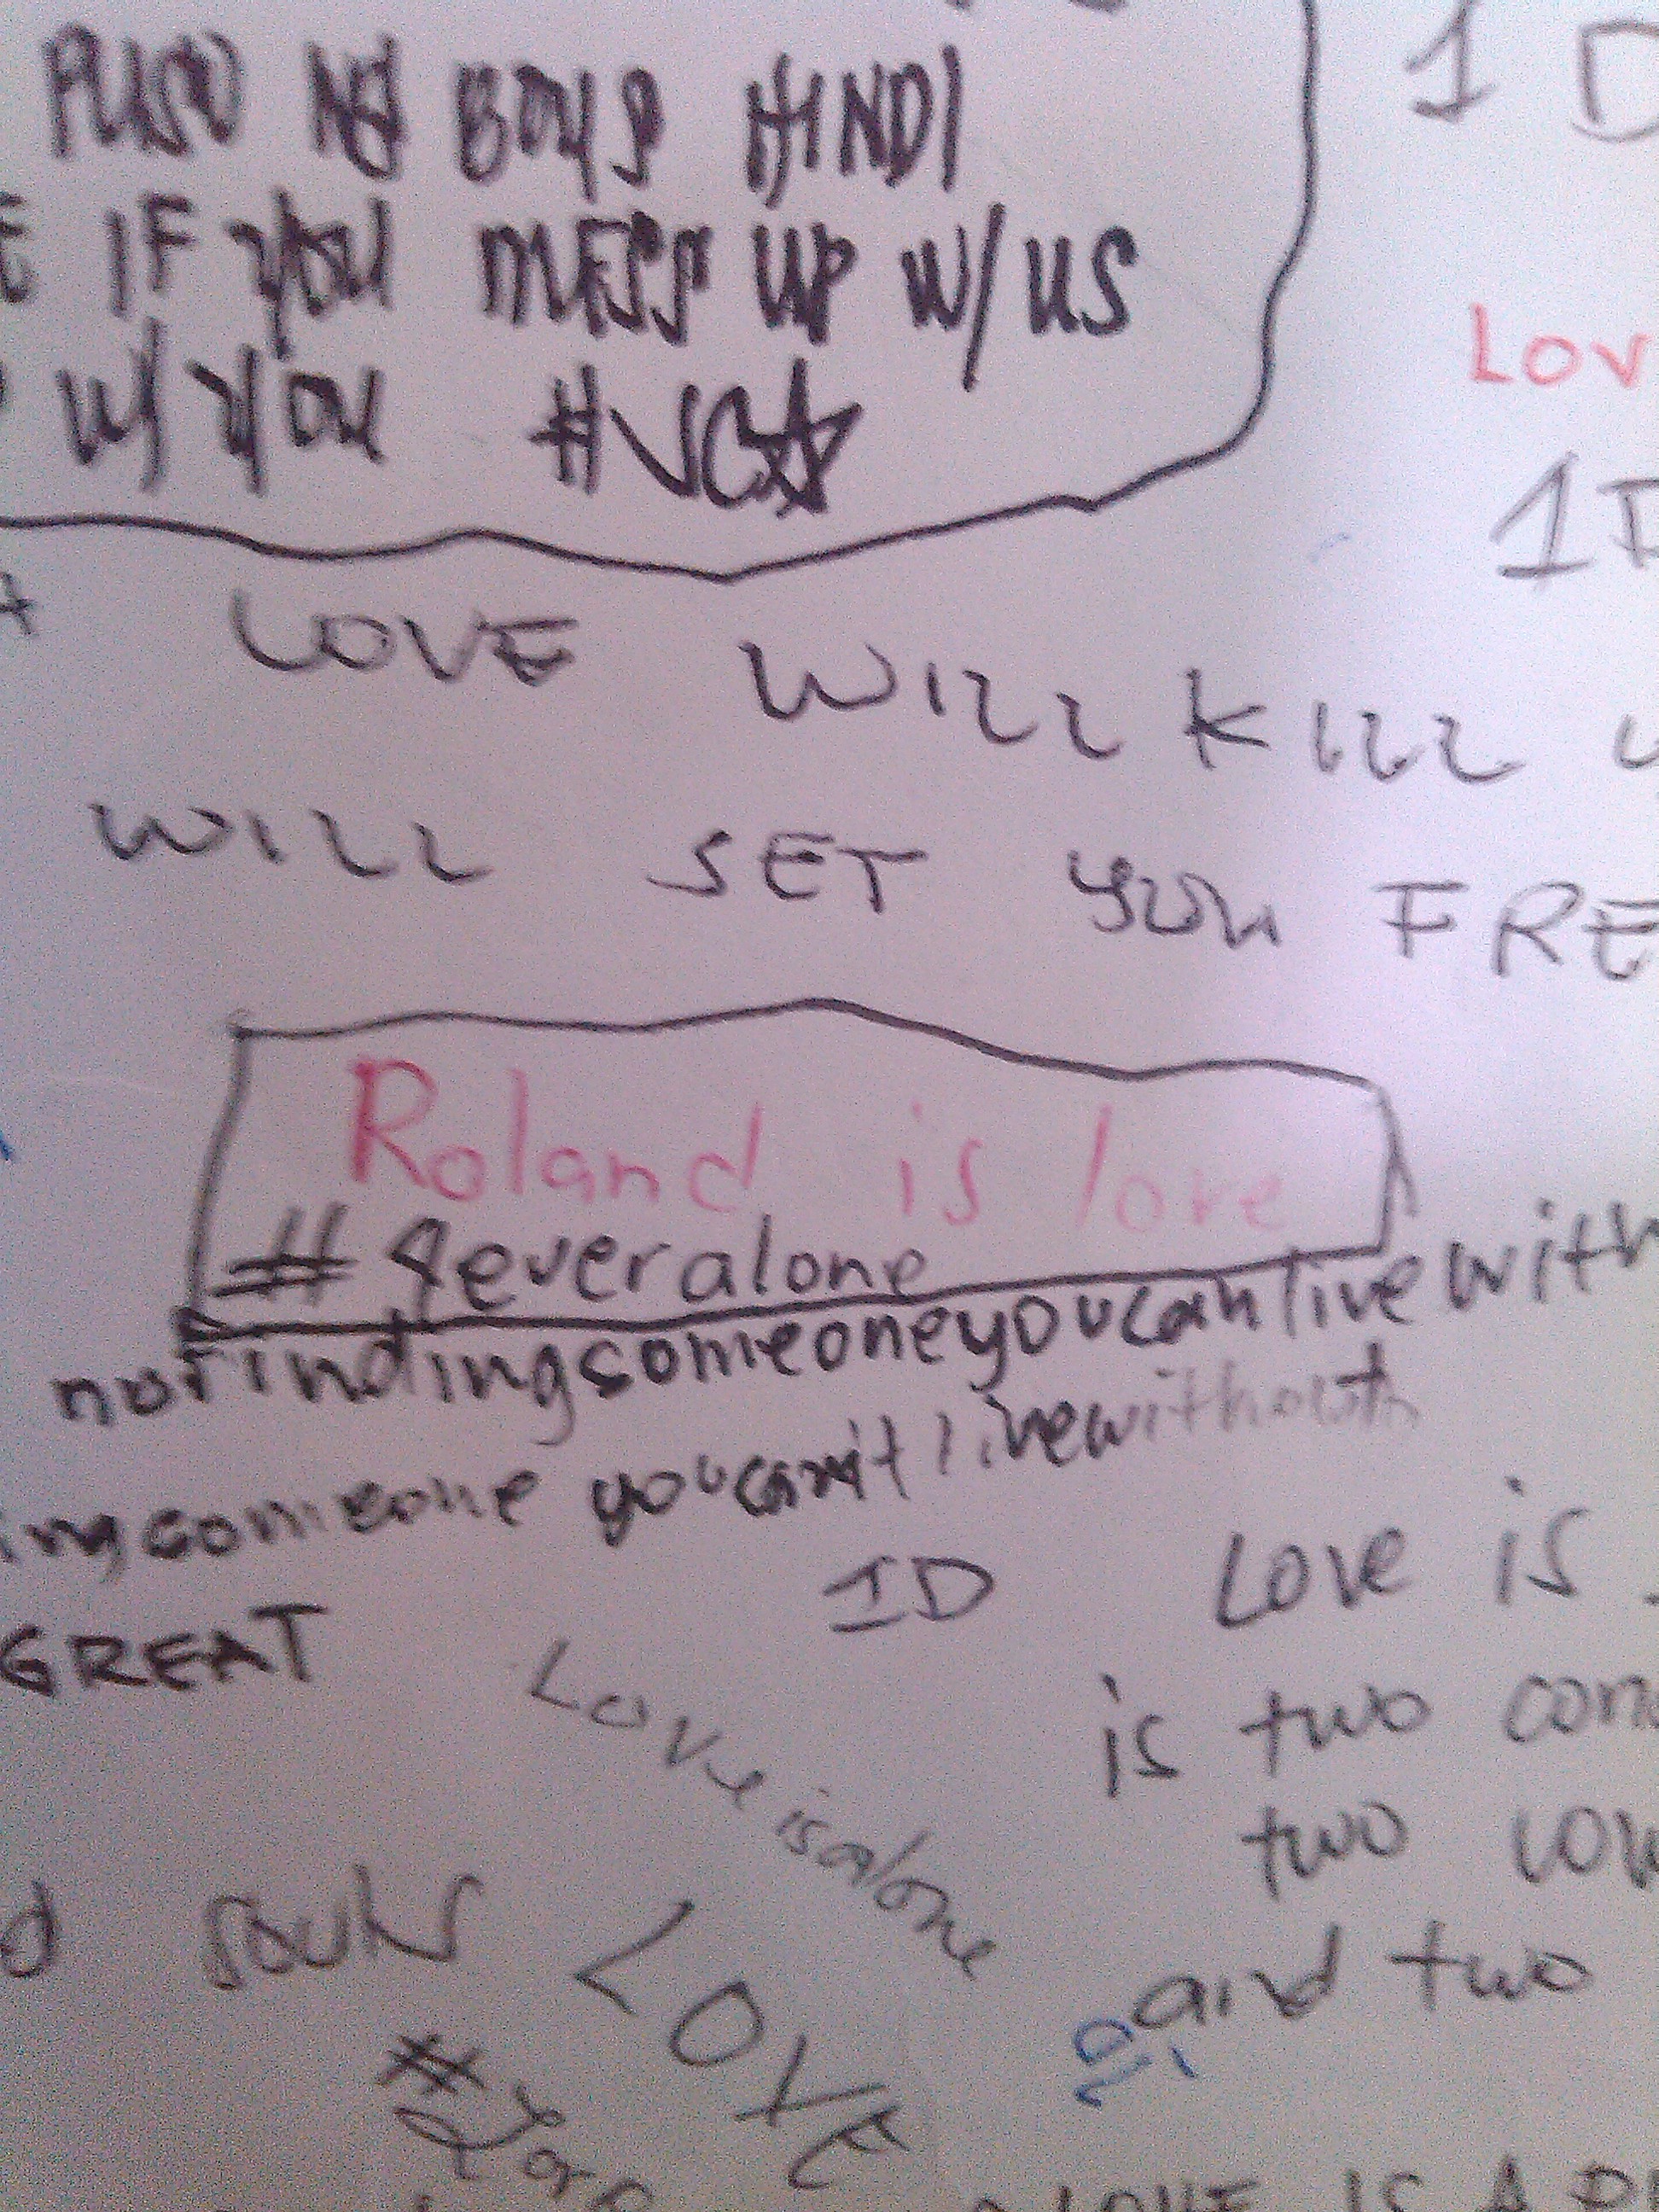 PUSO NG BOYS HINDI
IF YOU MESS UP W/ US
W/ YOU #VCA
1D
LOV
1D
LOVE WILL KILL
WILL SET YOU FRE
Roland is love
#4everalone
notfindingsomeoneyoucanlivewith
ingsomeone youcan'tlivewithout
1D
GREAT
Love is alone
Love is
is two
two
and two
souls
LOVE
#
LOVE IS A